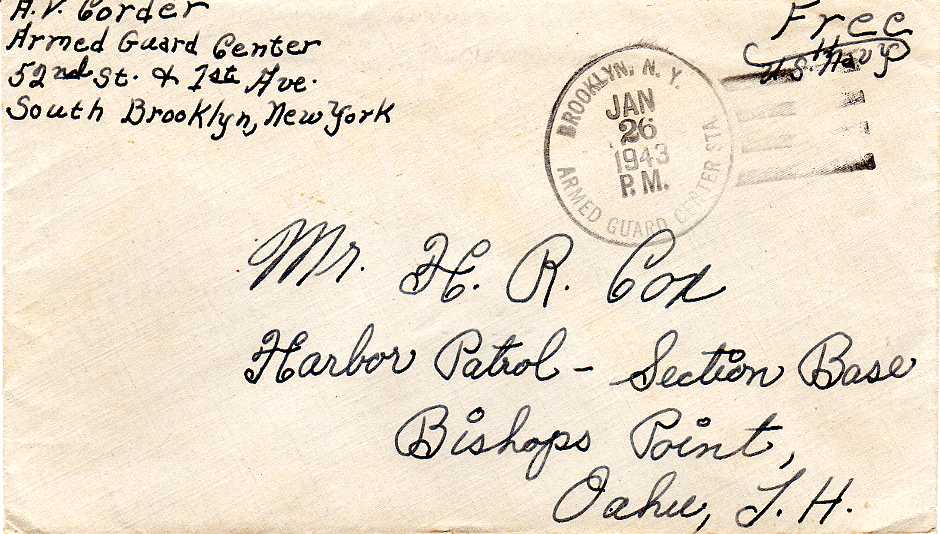 A.V. Corder
Armed Guard Center
52nd St. & 1st Ave.
South Brooklyn, New York
Free
U.S. Navy
BROOKLYN, N.Y.
JAN
26
1943
P.M.
ARMED GUARD CENTER STA.
Mr. H. R. Cox
Harbor Patrol - Section Base
Bishops Point,
Oahu, T.H.